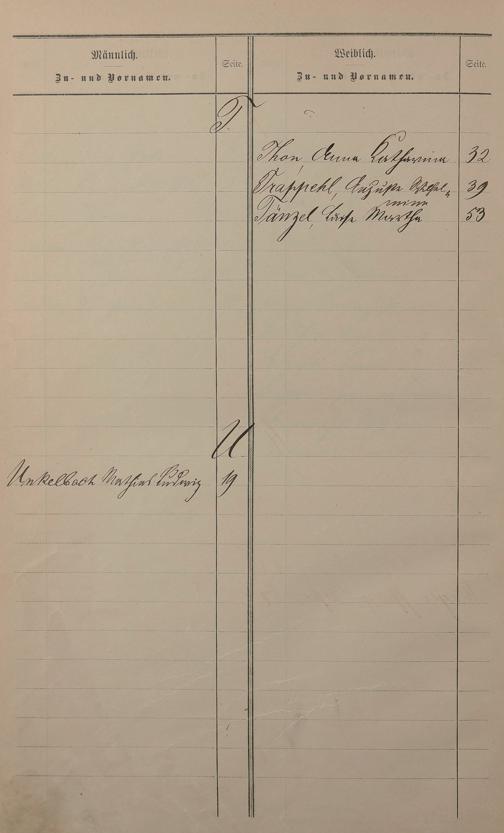 Männlich.
Zu- und Vornamen.
Seite.
Weiblich.
Zu- und Vornamen.
Seite.
T.
Thon, Anna Katharina 32
Trappehl, Auguste Wilhel- 39
mine
Tänzel, Luise Martha 53
U
Unkelbach Mathias Ludwig 19